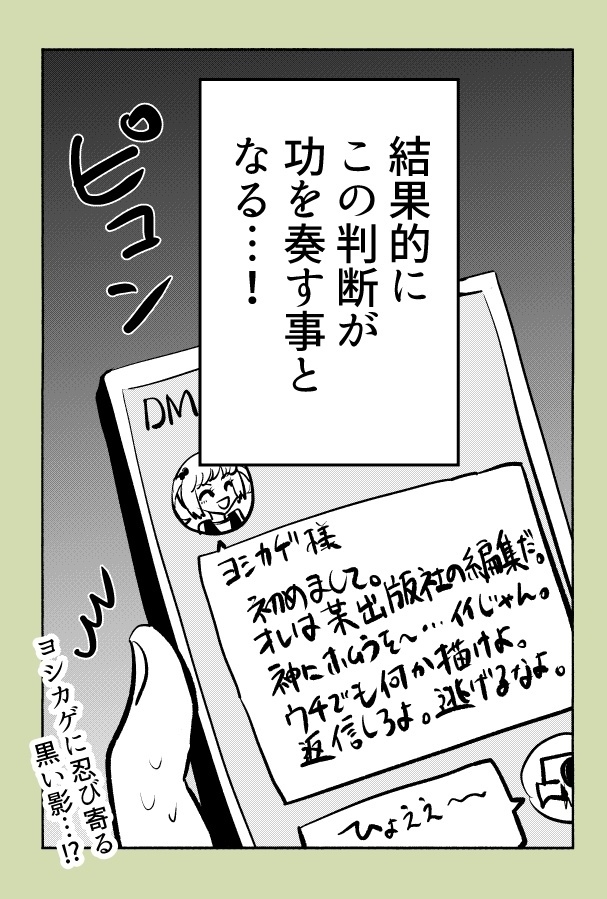 結果的に
この判断が
功を奏す事と
なる…！
ピコン
DM
ヨシカゲ様
初めまして。
オレは某出版社の編集だ。
神にホムラを〜…イイじゃん。
ウチでも何か描けよ。
返信しろよ。逃げるなよ。
ひょええ〜
ヨシカゲに忍び寄る
黒い影…!?